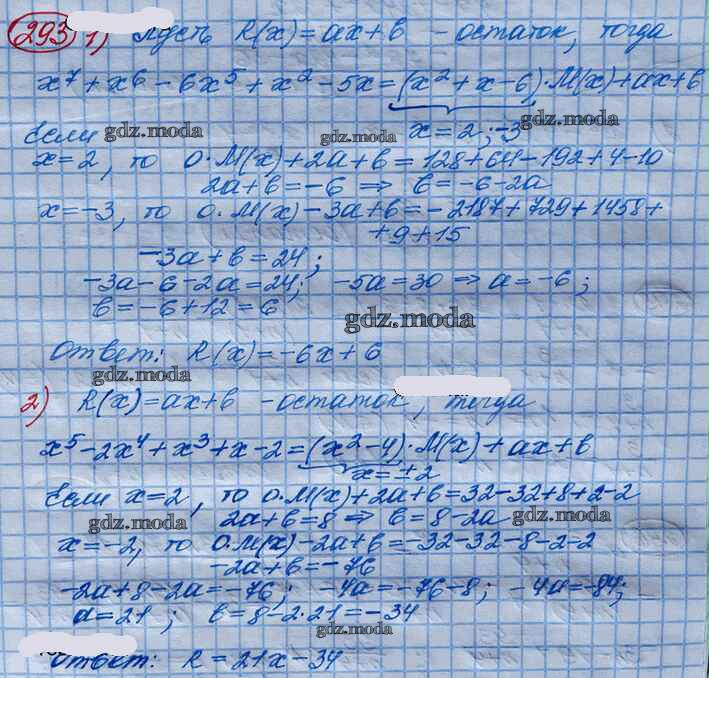 293 1) Пусть R(x)=ax+b - остаток, тогда
x⁷+x⁶-6x⁵+x²-5x=(x²+x-6)·M(x)+ax+b
Если x=2;-3
gdz.moda gdz.moda gdz.moda
x=2, то 0·M(x)+2a+b=128+64-192+4-10
2a+b=-6 ⇒ b=-6-2a
x=-3, то 0·M(x)-3a+b=-2187+729+1458+
+9+15
-3a+b=24;
-3a-6-2a=24; -5a=30 ⇒ a=-6;
b=-6+12=6
gdz.moda
Ответ: R(x)=-6x+6
gdz.moda
2) R(x)=ax+b - остаток, тогда
x⁵-2x⁴+x³+x-2=(x²-4)·M(x)+ax+b
x=±2
Если x=2, то 0·M(x)+2a+b=32-32+8+2-2
gdz.moda 2a+b=8 ⇒ b=8-2a gdz.moda
x=-2, то 0·M(x)-2a+b=-32-32-8-2-2
-2a+b=-76
-2a+8-2a=-76; -4a=-76-8; -4a=-84;
a=21; b=8-2·21=-34
gdz.moda
Ответ: R=21x-34